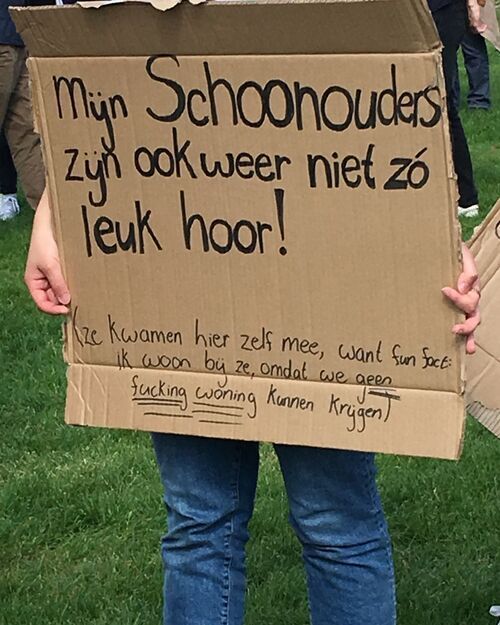 Mijn Schoonouders
zijn ook weer niet zó
leuk hoor!
(ze kwamen hier zelf mee, want fun fact:
ik woon bij ze, omdat we geen
fucking woning kunnen krijgen)